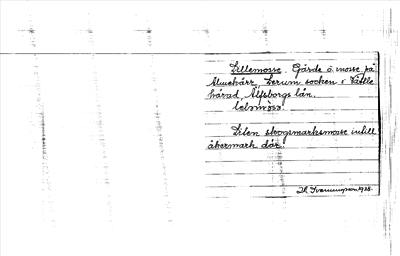 Lillemosse. Gärde å mosse på
Almekärr, Lerum socken i Vättle
härad, Älfsborgs län.
Liten skogsmarksmosse intill
åkermark där.
1928.